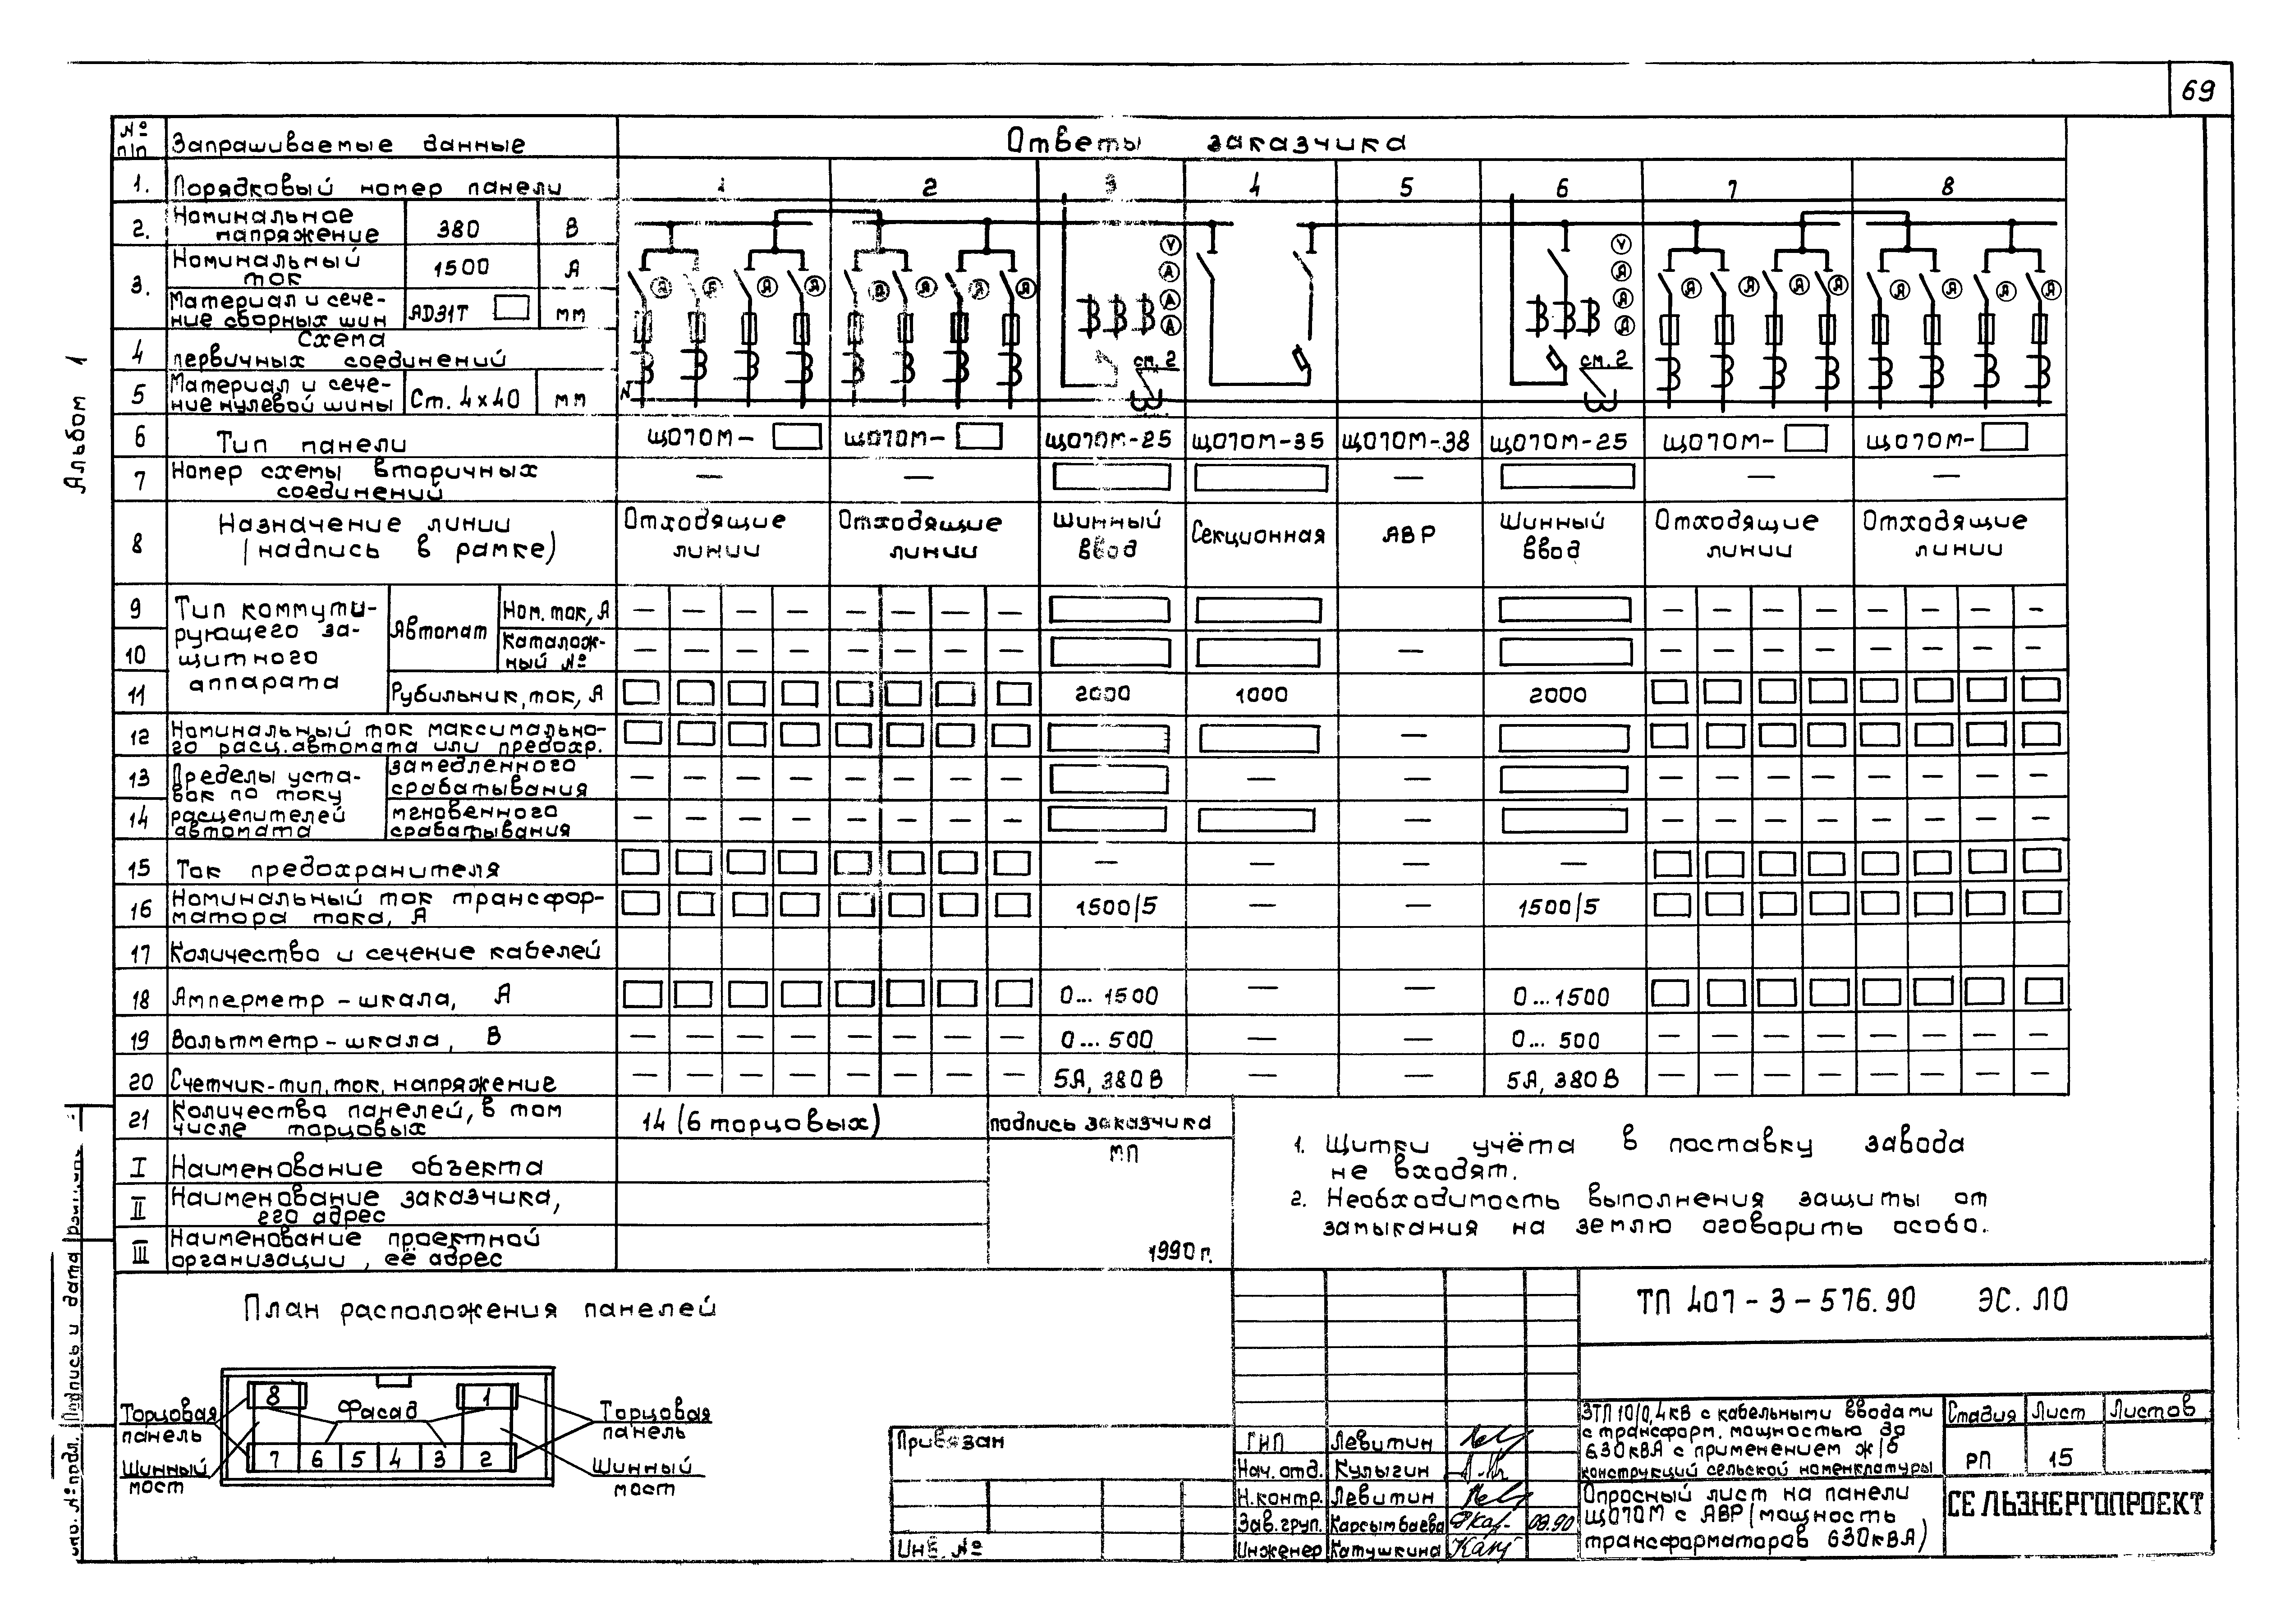 69
Альбом 1
№ п/п Запрашиваемые данные Ответы заказчика
1. Порядковый номер панели 1 2 3 4 5 6 7 8
2. Номинальное напряжение 380 В
3. Номинальный ток 1500 А
Материал и сечение сборных шин АD31Т мм
4 Схема первичных соединений
5 Материал и сечение нулевой шины Ст. 4×40 мм
N
см. 2
см. 2
6 Тип панели ЩО70М- ЩО70М- ЩО70М-25 ЩО70М-35 ЩО70М-38 ЩО70М-25 ЩО70М- ЩО70М-
7 Номер схемы вторичных соединений — — — — —
8 Назначение линии (надпись в рамке) Отходящие линии Отходящие линии Шинный ввод Секционная АВР Шинный ввод Отходящие линии Отходящие линии
Тип коммутирующего защитного аппарата
9 Автомат Ном. ток, А — — — — — — — — — — — — — — — —
10 Каталожный № — — — — — — — — — — — — — — — — —
11 Рубильник, ток, А 2000 1000 2000
12 Номинальный ток максимального расц. автомата или предохр. —
Пределы уставок по току расцепителей автомата
13 замедленного срабатывания — — — — — — — — — — — — — — — — — —
14 мгновенного срабатывания — — — — — — — — — — — — — — — — —
15 Ток предохранителя — — — —
16 Номинальный ток трансформатора тока, А 1500/5 — — 1500/5
17 Количество и сечение кабелей
18 Амперметр - шкала, А 0...1500 — — 0...1500
19 Вольтметр - шкала, В — — — — — — — — 0...500 — — 0...500 — — — — — — — —
20 Счетчик-тип, ток, напряжение — — — — — — — — 5А, 380В — — 5А, 380В — — — — — — — —
21 Количество панелей, в том числе торцовых 14 (6 торцовых) подпись заказчика
МП
I Наименование объекта
II Наименование заказчика, его адрес
III Наименование проектной организации, её адрес
1990г.
1. Щитки учёта в поставку завода
не входят.
2. Необходимость выполнения защиты от
замыкания на землю оговорить особо.
План расположения панелей
8 1
Фасад
7 6 5 4 3 2
Торцовая панель
Шинный мост
Торцовая панель
Шинный мост
Привязан
Инв. №
ТП 407-3-576.90 ЭС. ЛО
ГИП Левитин
Нач. отд. Кулыгин
Н.контр. Левитин
Зав. груп. Карсымбаева 08.90
Инженер Катушкина
ЗТП 10/0,4кВ с кабельными вводами
с трансформ. мощностью до
630кВА с применением ж/б
конструкций сельской номенклатуры
Стадия Лист Листов
РП 15
Опросный лист на панели
ЩО70М с АВР (мощность
трансформаторов 630кВА)
СЕЛЬЭНЕРГОПРОЕКТ
Инв. № подл. Подпись и дата